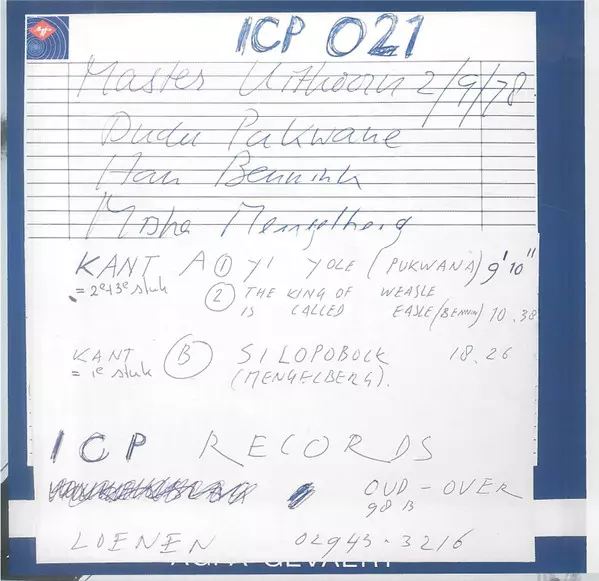 ICP 021
Master Uithoorn 2/9/78
Dudu Pukwane
Han Bennink
Misha Mengelberg
KANT A ① Y1 YOLE (PUKWANA) 9'10"
= 2e+3e stuk ② THE KING OF WEASLE
IS CALLED EASLE (BENNINK) 10.38
KANT Ⓑ SILOPOBOCK 18.26
= 1e stuk (MENGELBERG).
ICP RECORDS
OUD-OVER
98 B
LOENEN 02943-3216
AGFA-GEVAERT